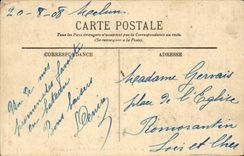 20-8-08 Melun
CARTE POSTALE
Tous les pays étrangers n'acceptent pas la Correspondance au recto
(Se renseigner à la Poste)
CORRESPONDANCE
ADRESSE
Un de mes
promenades
en
Bons baisers
Madame Gervais
place de l'Eglise
Romorantin
Loir et Cher